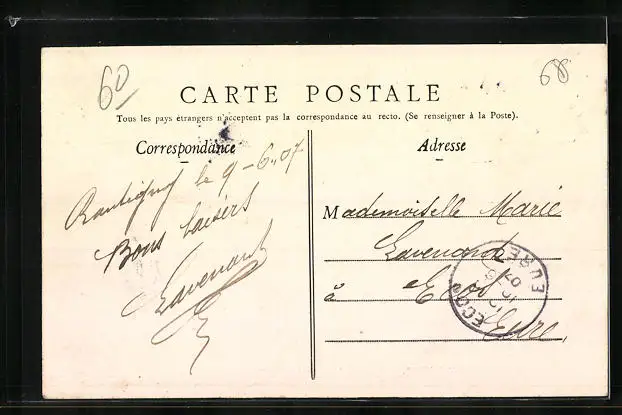 60
68
CARTE POSTALE
Tous les pays étrangers n'acceptent pas la correspondance au recto. (Se renseigner à la Poste).
Correspondance
Rantigny le 9-6.07
Bons baisers
Lavenant
Adresse
Mademoiselle Marie
Lavenant
à Ecos
Eure
ECOS
EURE
07